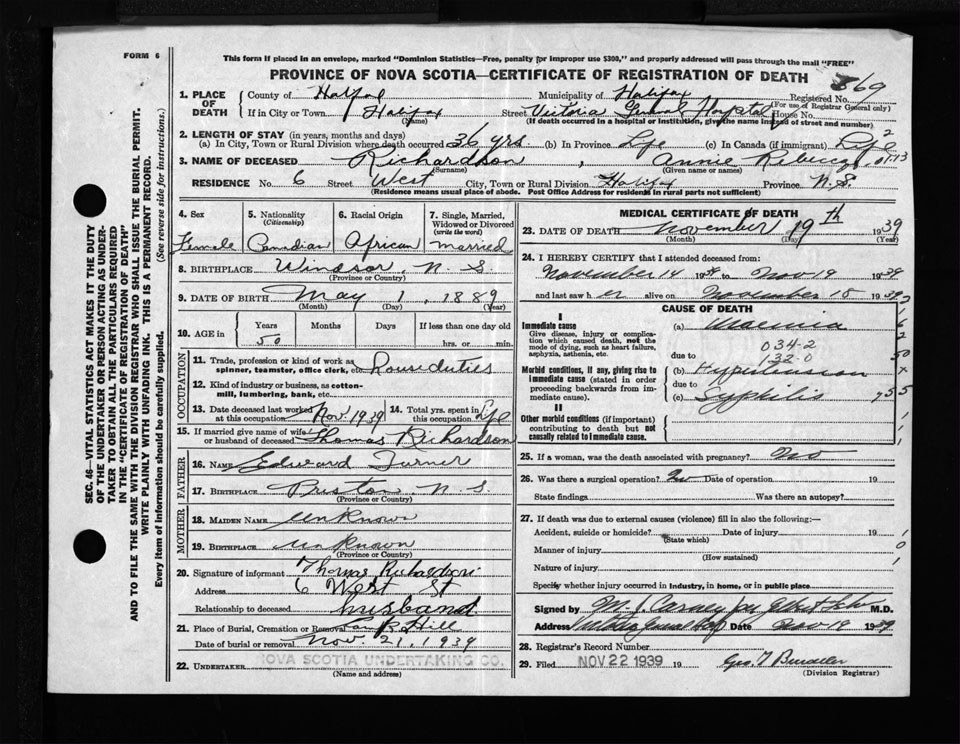 FORM 6
This form if placed in an envelope, marked "Dominion Statistics—Free, penalty for improper use $300," and properly addressed will pass through the mail "FREE"
PROVINCE OF NOVA SCOTIA—CERTIFICATE OF REGISTRATION OF DEATH
369
1. PLACE OF DEATH
County of Halifax Municipality of Halifax Registered No.
(For use of Registrar General only)
If in City or Town Halifax (Name) Street Victoria General Hospital House No.
(If death occurred in a hospital or institution, give the name instead of street and number)
2. LENGTH OF STAY (in years, months and days)
(a) In City, Town or Rural Division where death occurred 36 yrs (b) In Province Life (c) In Canada (if immigrant) Life
3. NAME OF DECEASED Richardson (Surname), Annie Rebecca (Given name or names)
RESIDENCE No. 6 Street West City, Town or Rural Division Halifax Province N.S.
(Residence means usual place of abode. Post Office Address for Residents in rural parts not sufficient)
4. Sex Female
5. Nationality (Citizenship) Canadian
6. Racial Origin African
7. Single, Married, Widowed or Divorced (write the word) married
8. BIRTHPLACE Windsor, N.S. (Province or Country)
9. DATE OF BIRTH May (Month) 1, (Day) 1889 (Year)
10. AGE in Years 50 Months Days If less than one day old hrs. or min.
OCCUPATION
11. Trade, profession or kind of work as spinner, teamster, office clerk, etc. Housеduties
12. Kind of industry or business, as cotton-mill, lumbering, bank, etc.
13. Date deceased last worked at this occupation Nov. 1939
14. Total yrs. spent in this occupation Life
15. If married give name of wife or husband of deceased Thomas Richardson
FATHER
16. NAME Edward Turner
17. BIRTHPLACE Preston, N.S. (Province or Country)
MOTHER
18. MAIDEN NAME unknown
19. BIRTHPLACE unknown (Province or Country)
20. Signature of informant Thomas Richardson
Address 6 West St
Relationship to deceased husband
21. Place of Burial, Cremation or Removal Camp Hill
Date of burial or removal Nov. 21, 1939
22. UNDERTAKER NOVA SCOTIA UNDERTAKING CO.
(Name and address)
MEDICAL CERTIFICATE OF DEATH
23. DATE OF DEATH November (Month) 19th (Day) 1939 (Year)
24. I HEREBY CERTIFY that I attended deceased from:
November 14 1939 to Nov 19 1939
and last saw her alive on November 18 1939
CAUSE OF DEATH
I
Immediate cause
Give disease, injury or complication which caused death, not the mode of dying, such as heart failure, asphyxia, asthenia, etc.
(a) Uraemia
034-2
due to 132-0
Morbid conditions, if any, giving rise to immediate cause (stated in order proceeding backwards from immediate cause).
(b) Hypertension
due to
(c) Syphilis
II
Other morbid conditions (if important) contributing to death but not causally related to immediate cause.
25. If a woman, was the death associated with pregnancy? No
26. Was there a surgical operation? No Date of operation 19
State findings Was there an autopsy?
27. If death was due to external causes (violence) fill in also the following:—
Accident, suicide or homicide? (State which) Date of injury 19
Manner of injury (How sustained)
Nature of injury
Specify whether injury occurred in industry, in home, or in public place
Signed by M.D.
Address Victoria General Hosp Date Nov 19 1939
28. Registrar's Record Number
29. Filed NOV 22 1939 19
(Division Registrar)
SEC. 46—VITAL STATISTICS ACT MAKES IT THE DUTY
OF THE UNDERTAKER OR PERSON ACTING AS UNDER-
TAKER TO OBTAIN ALL THE PARTICULARS REQUIRED
IN THE "CERTIFICATE OF REGISTRATION OF DEATH"
AND TO FILE THE SAME WITH THE DIVISION REGISTRAR WHO SHALL ISSUE THE BURIAL PERMIT.
WRITE PLAINLY WITH UNFADING INK. THIS IS A PERMANENT RECORD.
Every item of information should be carefully supplied. (See reverse side for instructions.)